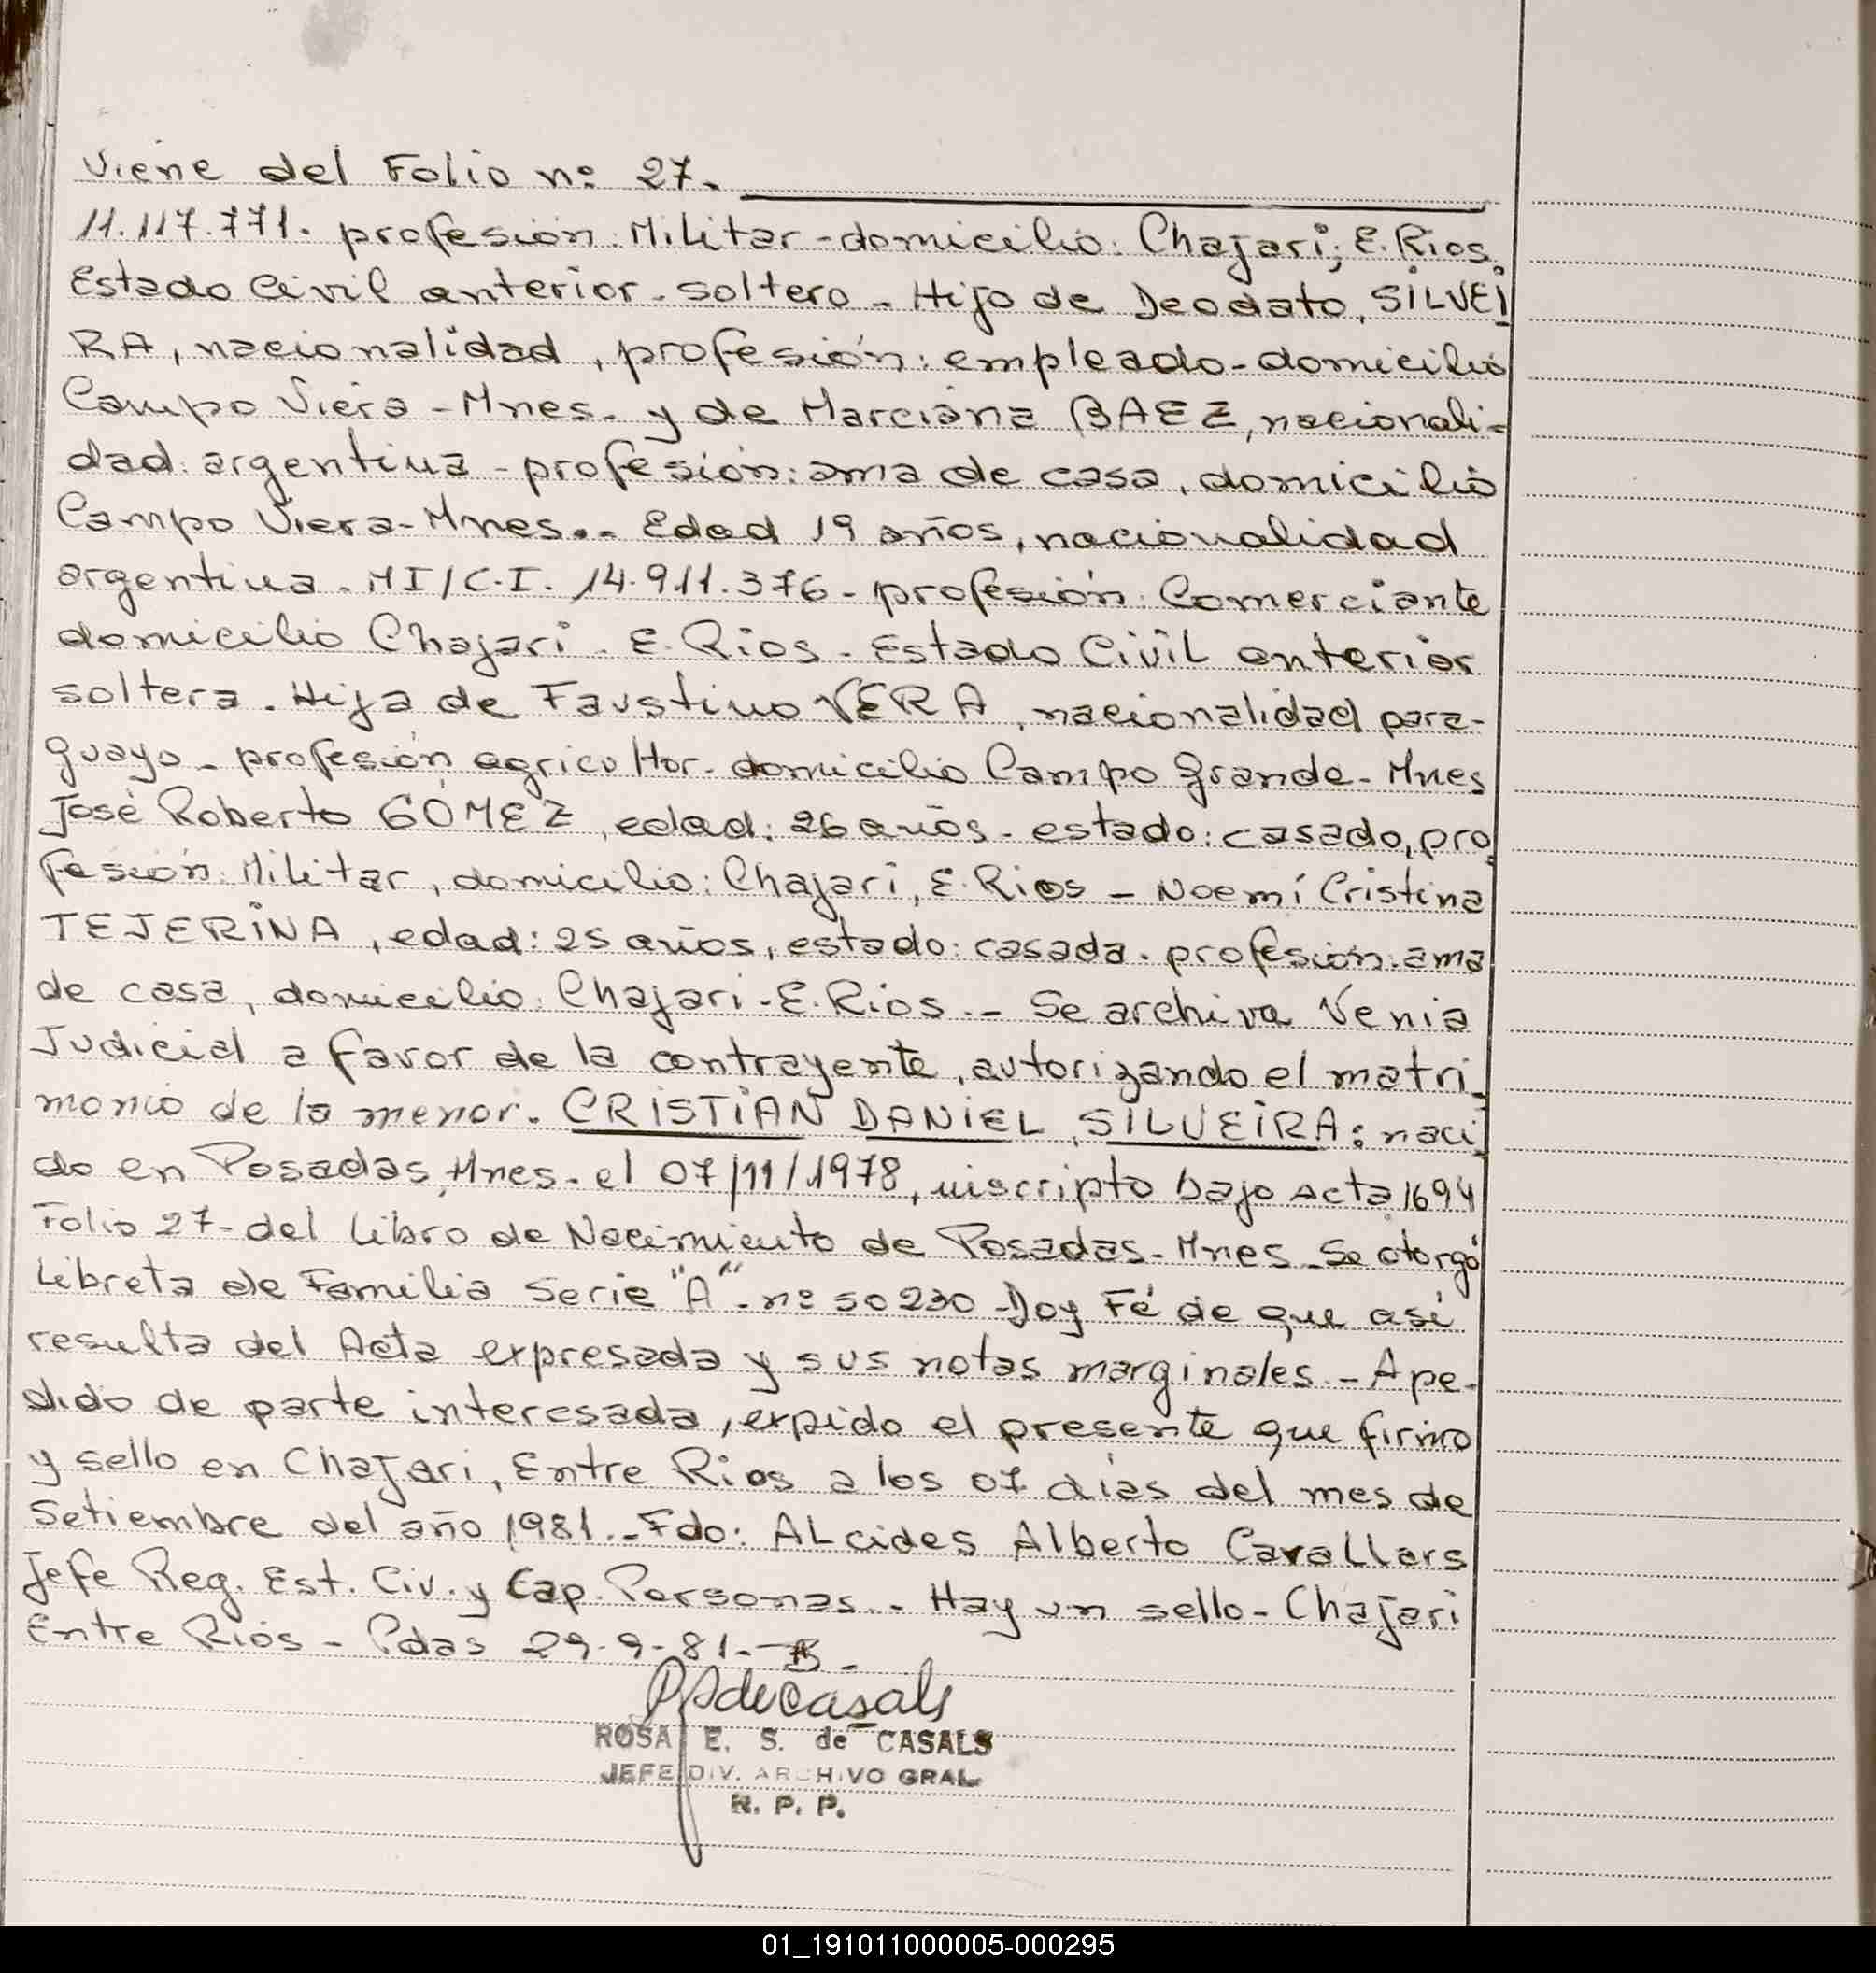 Viene del Folio nº 27.
11.117.771. profesión: Militar - domicilio: Chajari; E. Rios.
Estado Civil anterior - soltero - Hijo de Deodato, SILVEI
RA, nacionalidad, profesión: empleado - domicilio
Campo Viera - Mnes. y de Marciana BAEZ, nacionali-
dad: argentina - profesión: ama de casa, domicilio
Campo Viera - Mnes.. Edad 19 años, nacionalidad
argentina. MI/C.I. 14.911.376 - profesión: Comerciante
domicilio Chajari - E. Rios - Estado Civil anterior
soltera. Hija de Faustino VERA, nacionalidad para-
guayo - profesión agricultor - domicilio Campo Grande - Mnes
José Roberto GÓMEZ, edad: 26 años - estado: casado, pro
fesión: Militar, domicilio: Chajari, E. Rios - Noemí Cristina
TEJERINA, edad: 25 años, estado: casada. profesión: ama
de casa, domicilio: Chajari - E. Rios.- Se archiva Venia
Judicial a favor de la contrayente, autorizando el matri
monio de la menor. CRISTIAN DANIEL, SILVEIRA: naci
do en Posadas, Mnes. el 07/11/1978, inscripto bajo Acta 1694
Folio 27 - del Libro de Nacimiento de Posadas - Mnes - Se otorgó
Libreta de Familia Serie "A" - nº 50230 - Doy Fé de que así
resulta del Acta expresada y sus notas marginales - A pe-
dido de parte interesada, expido el presente que firmo
y sello en Chajari, Entre Rios a los 07 días del mes de
Setiembre del año 1981.- Fdo: ALcides Alberto Cavallars
Jefe Reg. Est. Civ. y Cap. Personas.- Hay un sello - Chajari
Entre Rios - Pdas 29-9-81.-
ROSA E. S. de CASALS
JEFE DIV. ARCHIVO GRAL.
R. P. P.
01_191011000005-000295